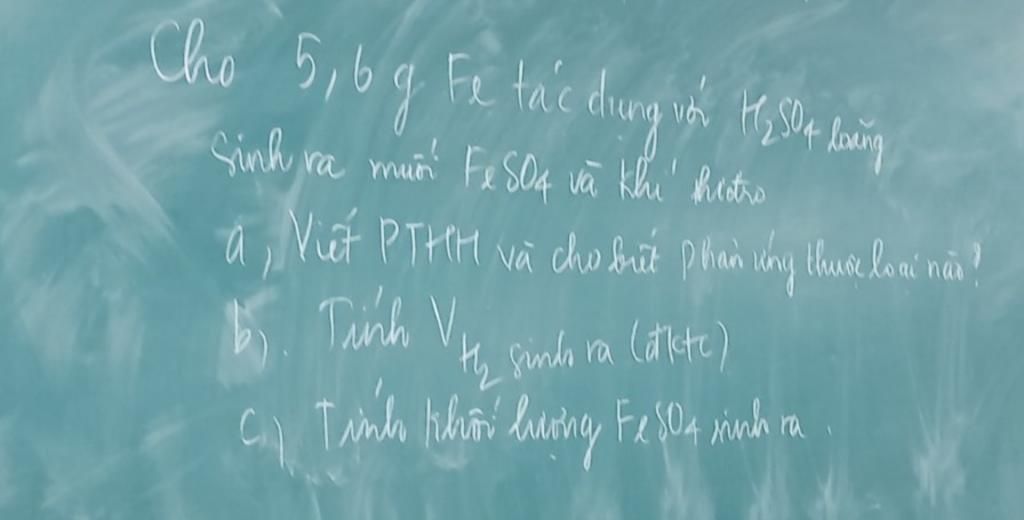 Cho 5,6 g Fe tác dụng với H₂SO₄ loãng
sinh ra muối FeSO₄ và khí hiđro
a, Viết PTHH và cho biết phản ứng thuộc loại nào?
b). Tính V H₂ sinh ra (đktc)
c) Tính khối lượng FeSO₄ sinh ra.